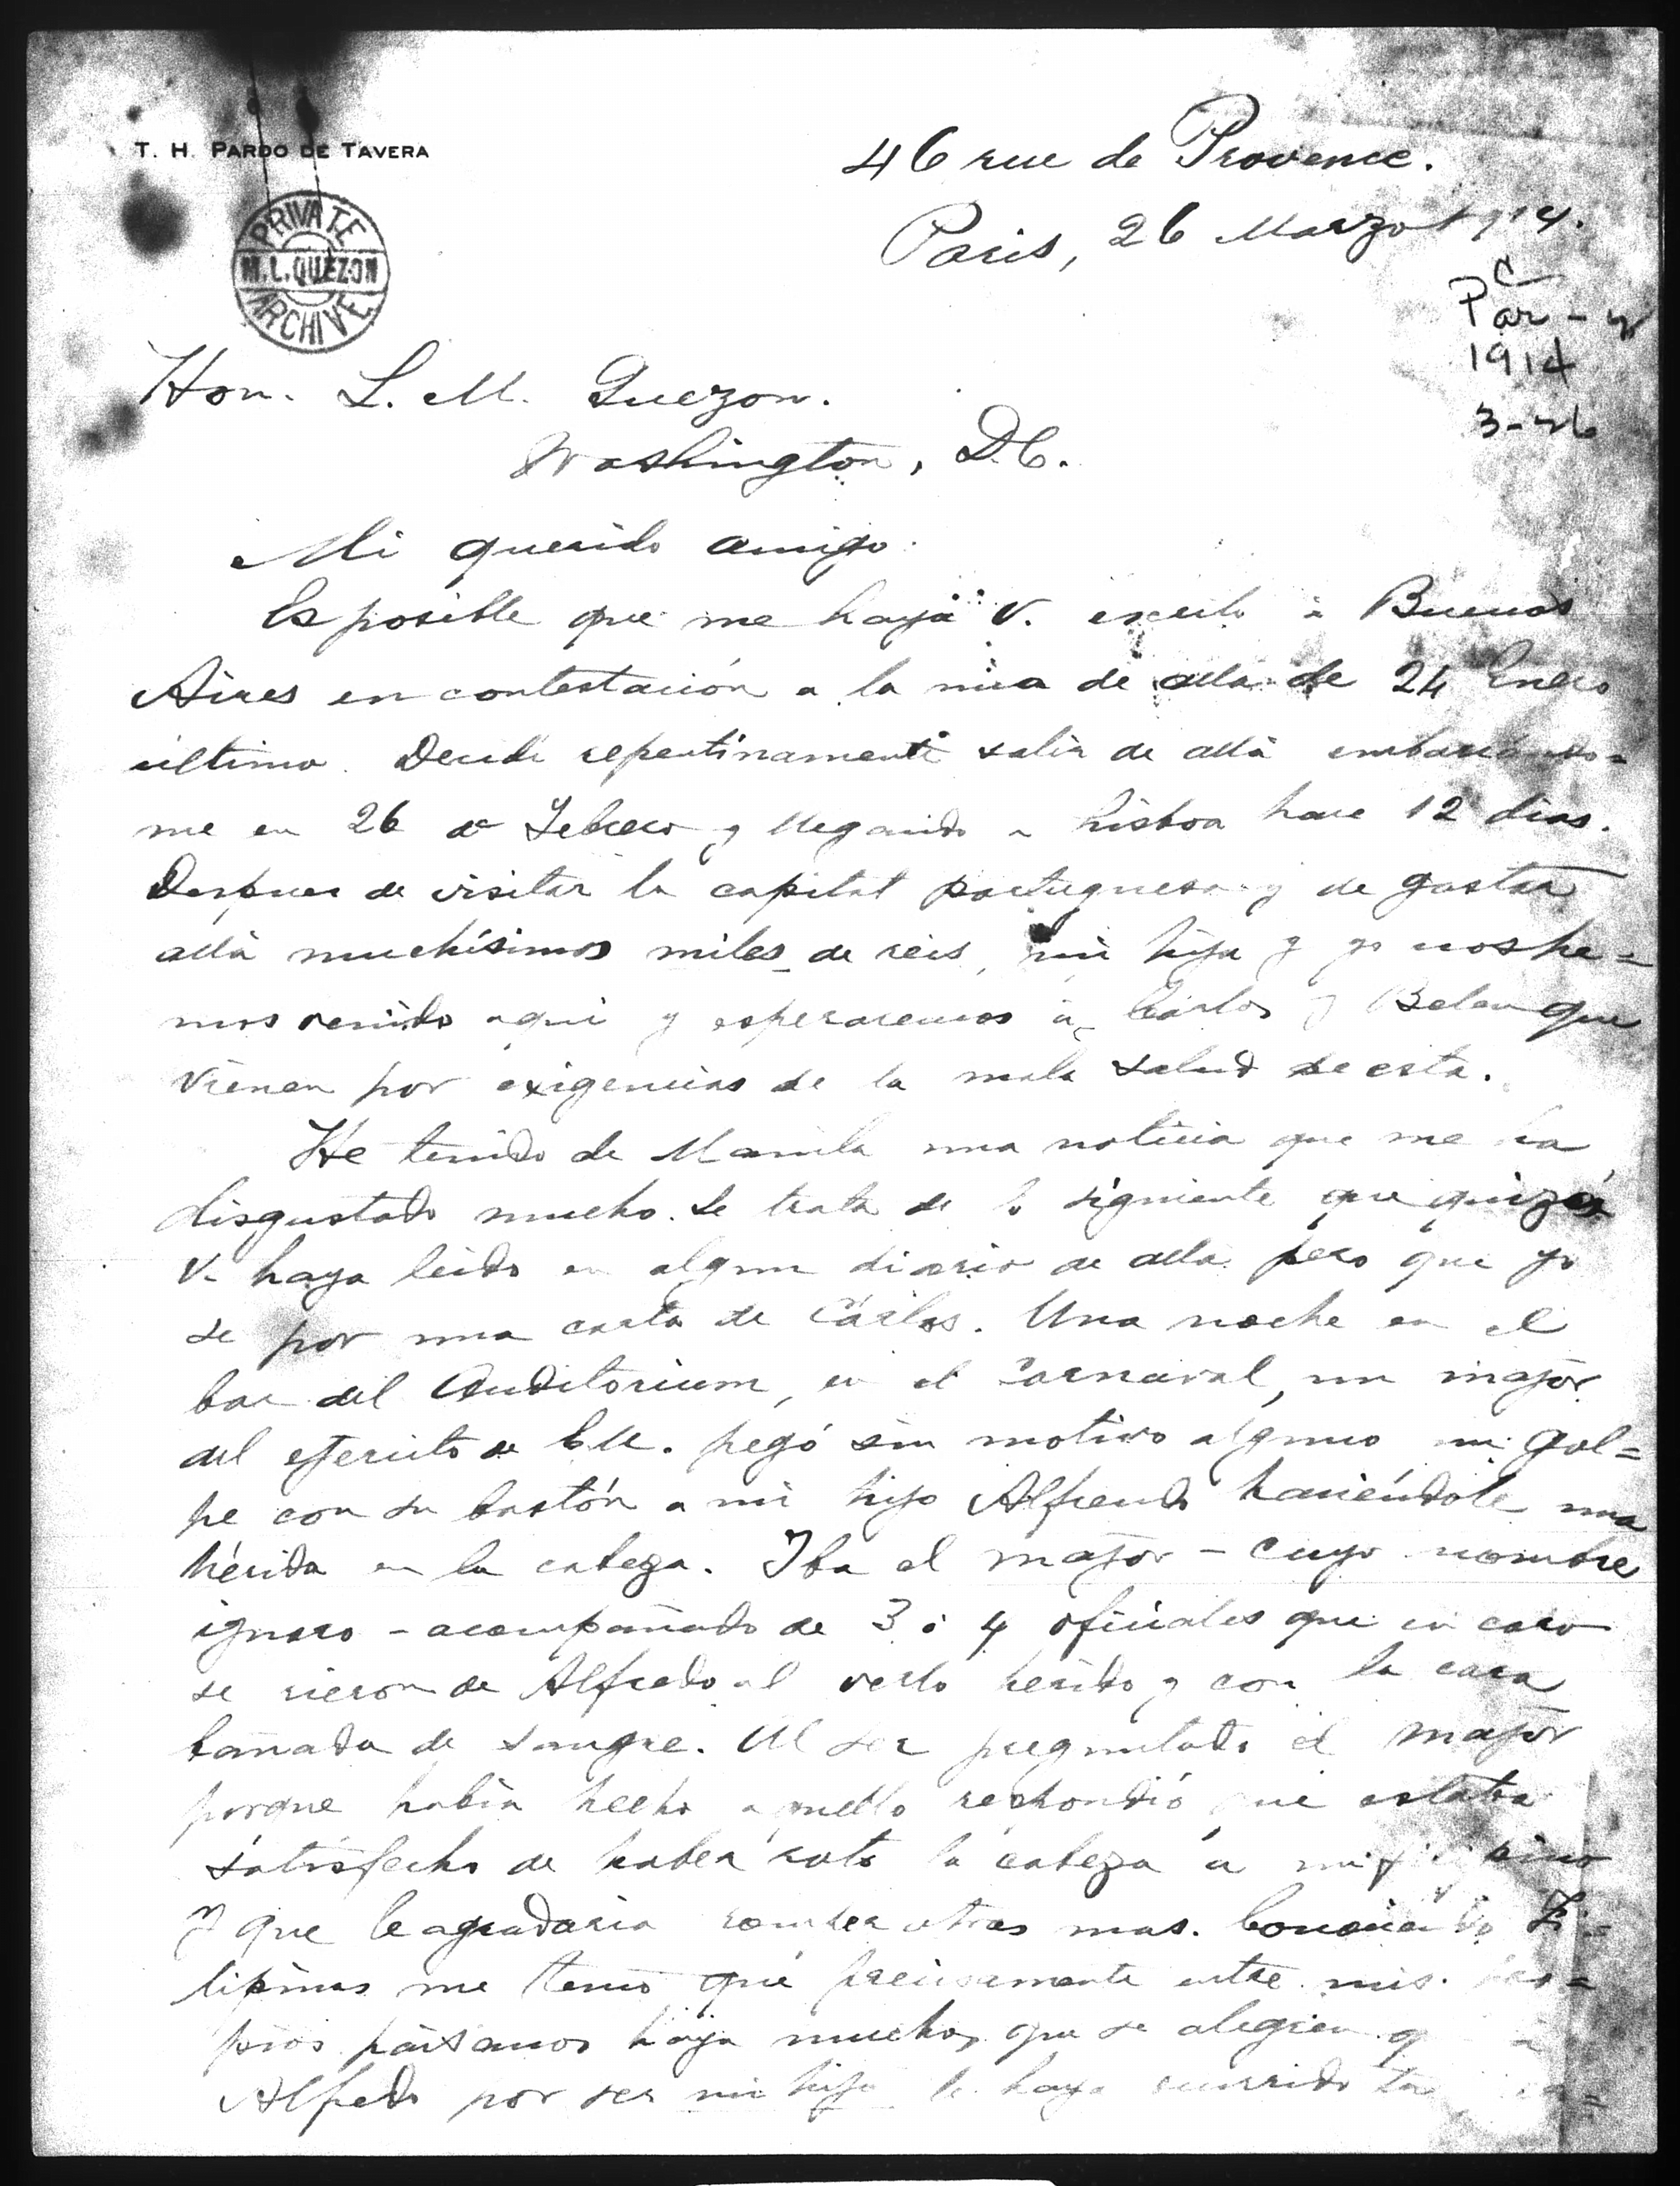 T. H. PARDO DE TAVERA
46 rue de Provence.
Paris, 26 Marzo 1914.
PRIVATE
M.L. QUEZON
ARCHIVE
C
Par - y
1914
3-26
Hon. L. M. Quezon.
Washington, D.C.
Mi querido amigo:
Es posible que me haya V. escrito á Buenos
Aires en contestación a la mia de alla de 24 Enero
último. Decidí repentinamente salir de allá embarcándo=
me en 26 de Febrero y llegando a Lisboa hace 12 dias.
Despues de visitar la capital portuguesa y de gastar
allá muchísimos miles de reis, mi hija y yo nos he=
mos venido aqui y esperaremos á Cárlos y Belen que
vienen por exigencias de la mala salud de esta.
He tenido de Manila una noticia que me ha
disgustado mucho. Se trata de lo siguiente que quizás
V. haya leido en algun diario de alla pero que yo
se por una carta de Cárlos. Una noche en el
bar del Auditorium, en el Carnaval, un major
del ejercito de E.U. pegó sin motivo alguno un gol=
pe con su bastón a mi hijo Alfredo haciéndole una
hérida en la cabeza. Iba el major - cuyo nombre
ignoro - acompañado de 3 ó 4 oficiales que en coro
se rieron de Alfredo al verlo herido y con la cara
bañada de sangre. Al ser preguntado el major
porque habia hecho aquello respondió que estaba
satisfecho de haber roto la cabeza a un filipino
y que le agradaria romper otras mas. Conociendo Fi=
lipinas me temo que precisamente entre mis pro=
pios paisanos haya muchos que se alegren q
Alfredo por ser mi hijo le haya ocurrido